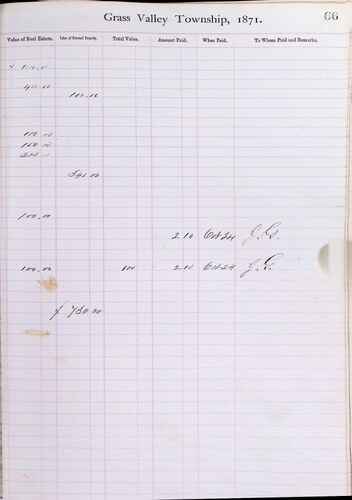 Grass Valley Township, 1871.
66
Value of Real Estate. Value of Personal Property. Total Value. Amount Paid. When Paid. To Whom Paid and Remarks.
400.00
100.00
100.00
150.00
300.00
540.00
100.00
2 10 Oct 24 J. G.
100.00 100 2 10 Oct 24 J. G.
750.00